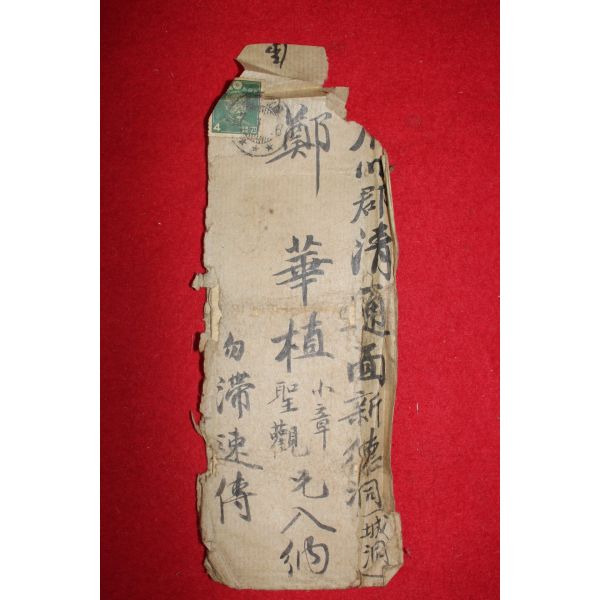 川郡清通面新德洞(城洞)
鄭華植
小章
聖觀
兄入納
勿滯速傳
4